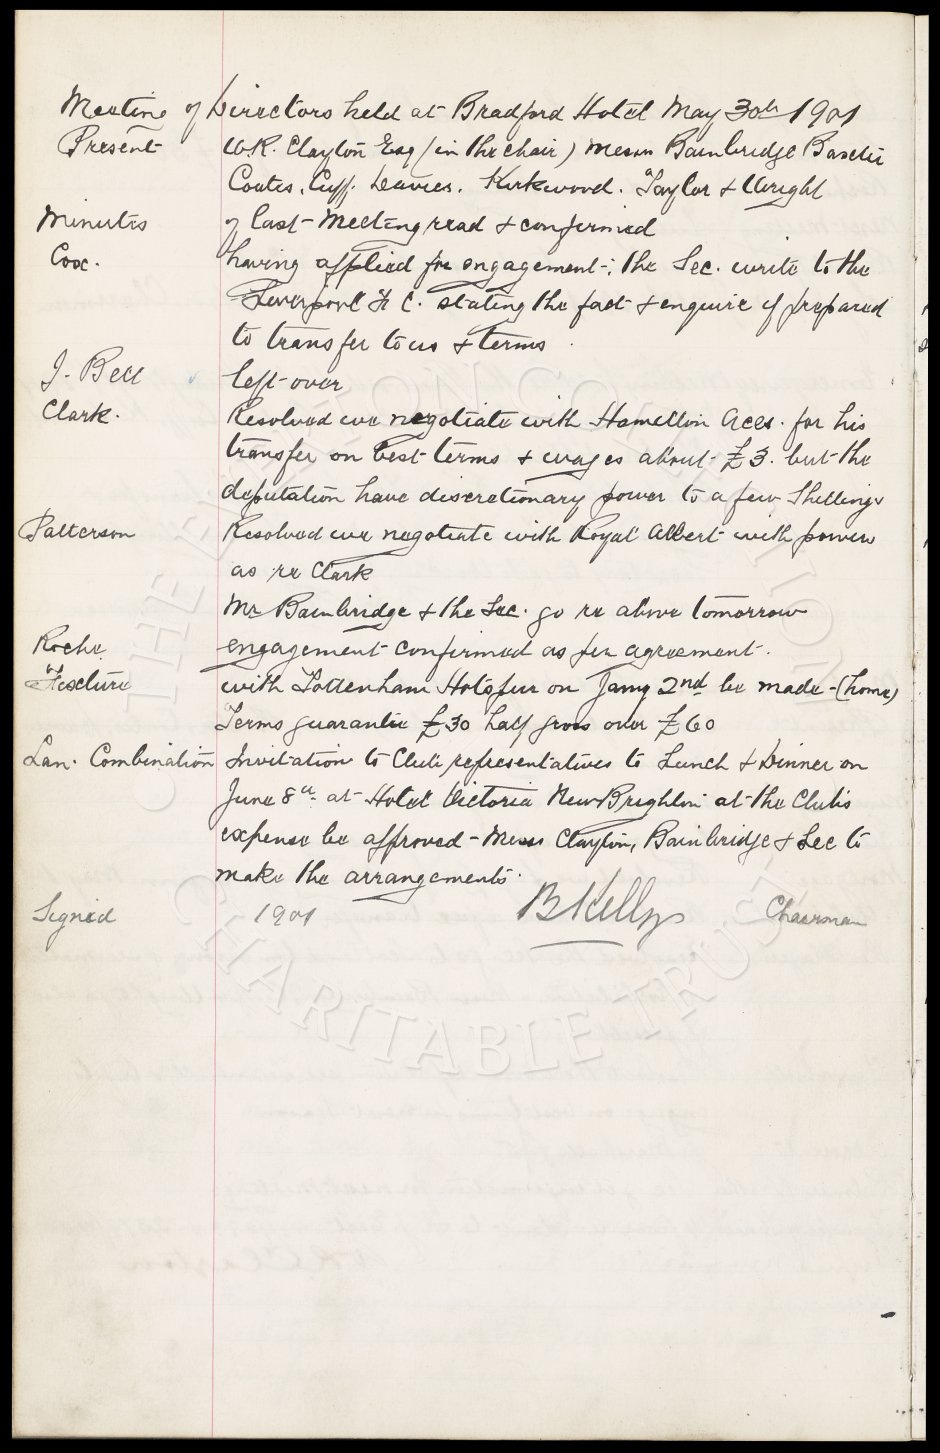 Meeting of Directors held at Bradford Hotel May 30th 1901
Present W.R. Clayton Esq (in the chair) Messrs Bainbridge Baxter
Coates, Cuff. Davies. Kirkwood. Taylor & Wright
Minutes of last Meeting read & confirmed
Cox. having applied for engagement, the Sec. write to the
Liverpool F C. stating the fact & enquire if prepared
to transfer to us & terms
J. Bell left over
Clark. Resolved we negotiate with Hamilton Aces. for his
transfer on best terms & wages about £3. but the
deputation have discretionary power to a few shillings
Patterson Resolved we negotiate with Royal Albert with powers
as re Clark
Mr Bainbridge & the Sec. go re above tomorrow
Roche engagement confirmed as per agreement.
Fixture with Tottenham Hotspur on Jany 2nd be made - (home)
Terms guarantee £30 half gross over £60
Lan. Combination Invitation to Club representatives to Lunch & Dinner on
June 8th at Hotel Victoria New Brighton at the Club's
expense be approved - Messrs Clayton, Bainbridge & Sec to
make the arrangements.
Signed 1901 B Kelly Chairman
THE EVERTON COLLECTION
CHARITABLE TRUST